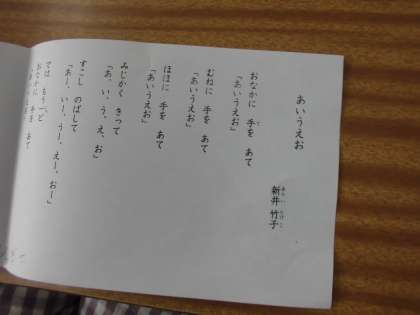 あいうえお
新井 竹子
おなかに 手を あて
「あいうえお」
むねに 手を あて
「あいうえお」
ほほに 手を あて
「あいうえお」
みじかく きって
「あ、い、う、え、お」
すこし のばして
「あー、いー、うー、えー、おー」
では もう一ど
おなかに 手を あて